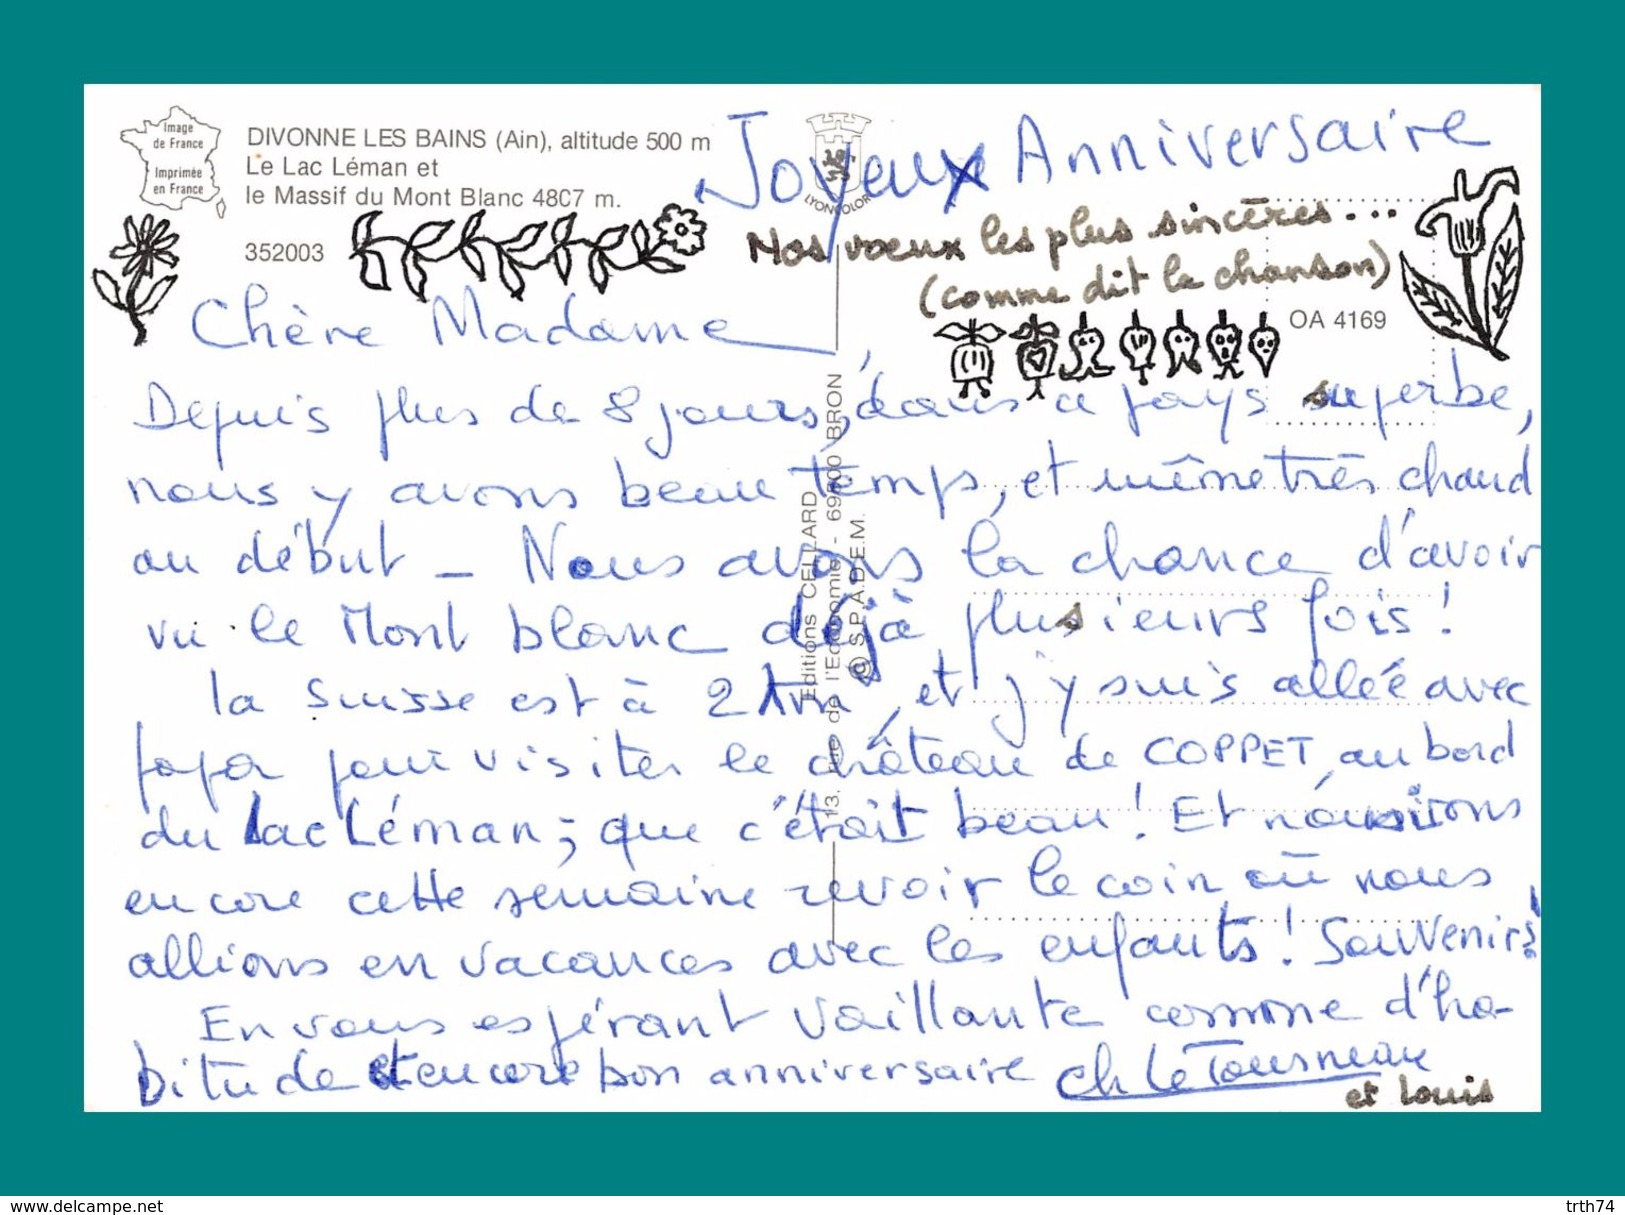 Image
de France
Imprimée
en France
DIVONNE LES BAINS (Ain), altitude 500 m
Le Lac Léman et
le Massif du Mont Blanc 48C7 m.
352003
LYONCOLOR
Joyeux Anniversaire
Nos voeux les plus sincères...
(comme dit la chanson)
OA 4169
Editions CELLARD
13, rue de l'Economie - 69500 BRON
© S.P.A.D.E.M.
Chère Madame,
Depuis plus de 8 jours, dans ce pays superbe,
nous y avons beau temps, et même très chaud
au début - Nous avons la chance d'avoir
vu le Mont blanc déjà plusieurs fois !
la Suisse est à 2 km, et j'y suis allée avec
papa pour visiter le château de COPPET, au bord
du Lac Léman ; que c'était beau ! Et nous irons
encore cette semaine revoir le coin où nous
allions en vacances avec les enfants ! Souvenirs !
En vous espérant vaillante comme d'ha-
bitude et encore bon anniversaire Ch Le Tourneau
et Louis
www.delcampe.net
trth74